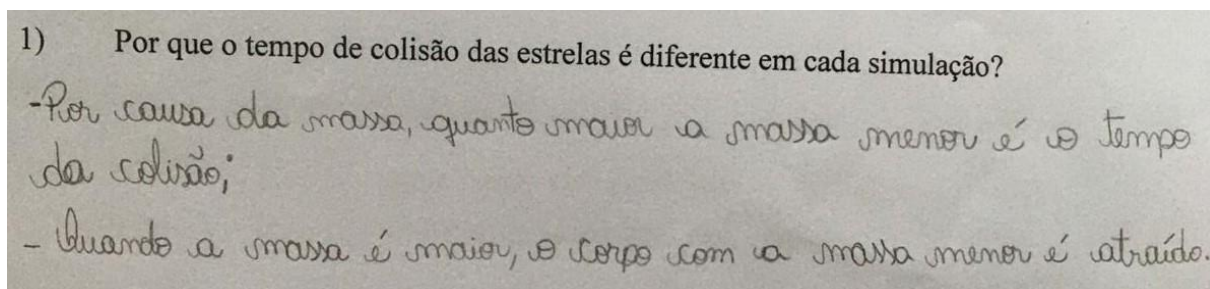 1) Por que o tempo de colisão das estrelas é diferente em cada simulação?
-Por causa da massa, quanto maior a massa menor é o tempo
da colisão;
- Quando a massa é maior, o corpo com a massa menor é atraído.